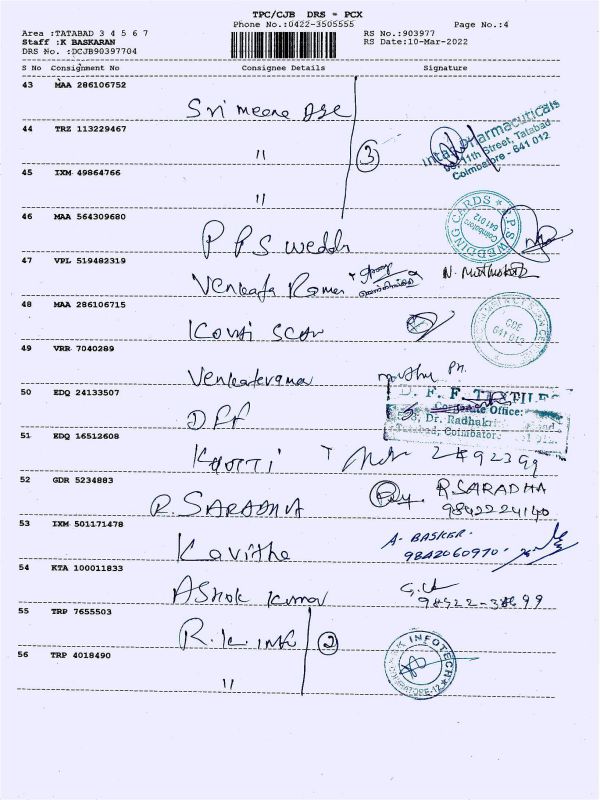 TPC/CJB DRS - PCX
Phone No.:0422-3505555 Page No.:4
Area :TATABAD 3 4 5 6 7 RS No.:903977
Staff :K BASKARAN RS Date:10-Mar-2022
DRS No. :DCJB90397704
S No Consignment No Consignee Details Signature
43 MAA 286106752
Sri meena
44 TRZ 113229467
11th Street, Tatabad
Coimbatore - 641 012
"
3
45 IXM 49864766
"
46 MAA 564309680
P P S
WEDDING CARDS
Coimbatore
641 012
47 VPL 519482319
Venkata Raman
48 MAA 286106715
Kovai Scan
CBE
641 012
49 VRR 7040289
Venkateramana
50 EDQ 24133507
DFF
D. F. F. TEXTILES
Corporate Office:
Dr. Radhakri
Tatabad, Coimbatore
51 EDQ 16512608
52 GDR 5234883
R. SARADHA
R SARADHA
9842224140
53 IXM 501171478
Kavitha
A. BASKER.
9842060970.
54 KTA 100011833
Ashok Kumar
55 TRP 7655503
R.K. info
2
INFOTECH
56 TRP 4018490
"